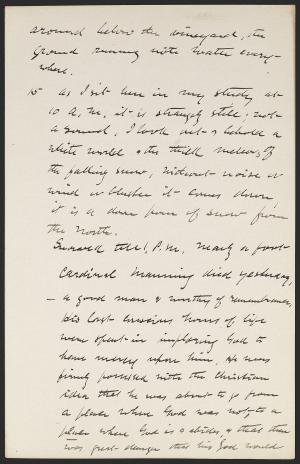 around below the vineyard, the
ground running with water every-
where.
15 as I sit here in my study at
10 A.M. it is strangely still; not
a sound, I look out & behold a
white world & the thick meteors of
the falling snow, without noise or
wind or bluster it comes down,
it is a down pour of snow from
the North.
Snowed till 1, P.M. nearly a foot
Cardinal Manning died yesterday,
— a good man & worthy of remembrance,
His last conscious hours of life
were spent in imploring God to
have mercy upon him. He was
firmly possessed with the Christian
idea that he was about to go from
a place where God was not, to a
place where God is & abides, & that there
was great danger that his God would